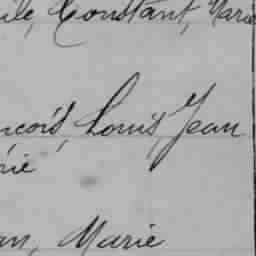 ile, Constant, Marie
ncois, Louis, Jean
rie
an, Marie